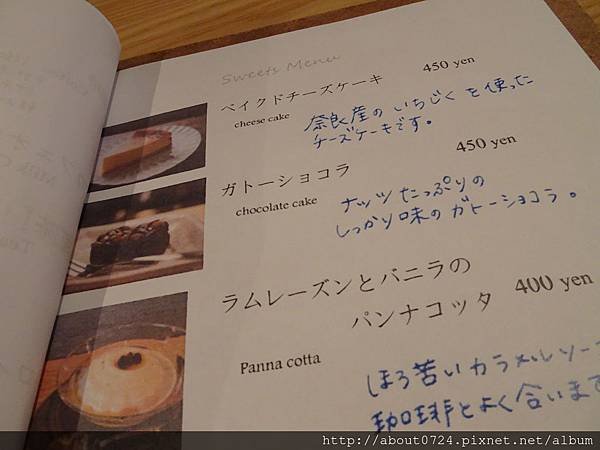 Sweets Menu
ベイクドチーズケーキ 450 yen
cheese cake
奈良産のいちじくを使った
チーズケーキです。
ガトーショコラ 450 yen
chocolate cake
ナッツたっぷりの
しっかり味のガトーショコラ。
ラムレーズンとバニラの
パンナコッタ 400 yen
Panna cotta
ほろ苦いカラメルソー
珈琲とよく合いま
http://about0724.pixnet.net/album